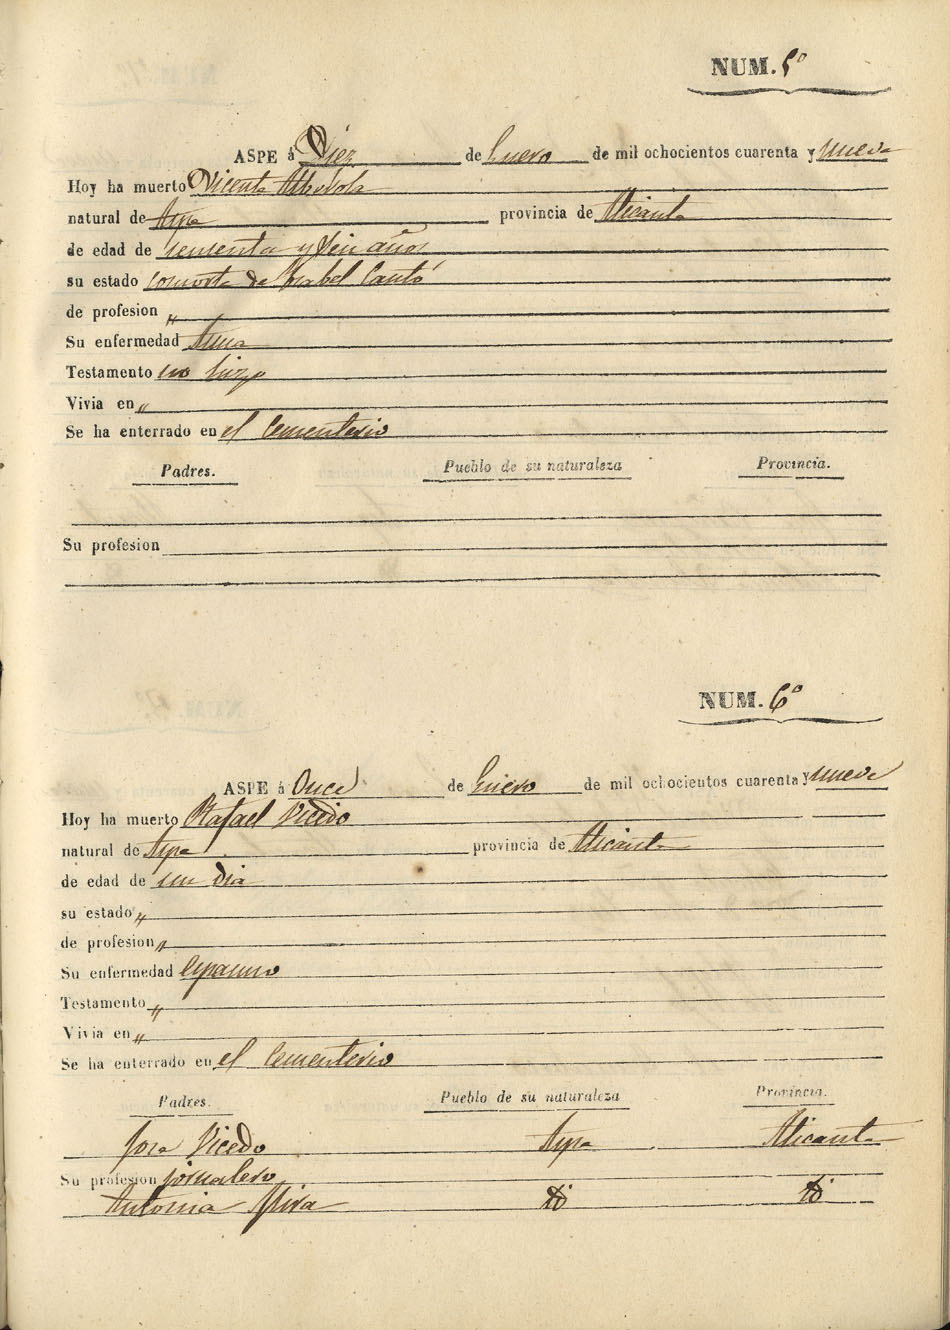 NUM. 5º
ASPE á Diez de Enero de mil ochocientos cuarenta y nueve
Hoy ha muerto Vicente Alberola
natural de Aspe provincia de Alicante
de edad de sesenta y seis años
su estado consorte de Isabel Cantó
de profesion "
Su enfermedad Asma
Testamento no hizo
Vivia en "
Se ha enterrado en el Cementerio
Padres. Pueblo de su naturaleza Provincia.
Su profesion
NUM. 6º
ASPE á Once de Enero de mil ochocientos cuarenta y nueve
Hoy ha muerto Rafael Vicedo
natural de Aspe provincia de Alicante
de edad de un dia
su estado "
de profesion "
Su enfermedad Espasmo
Testamento "
Vivia en "
Se ha enterrado en el Cementerio
Padres. Pueblo de su naturaleza Provincia.
Jose Vicedo Aspe Alicante
Su profesion jornalero
Antonia